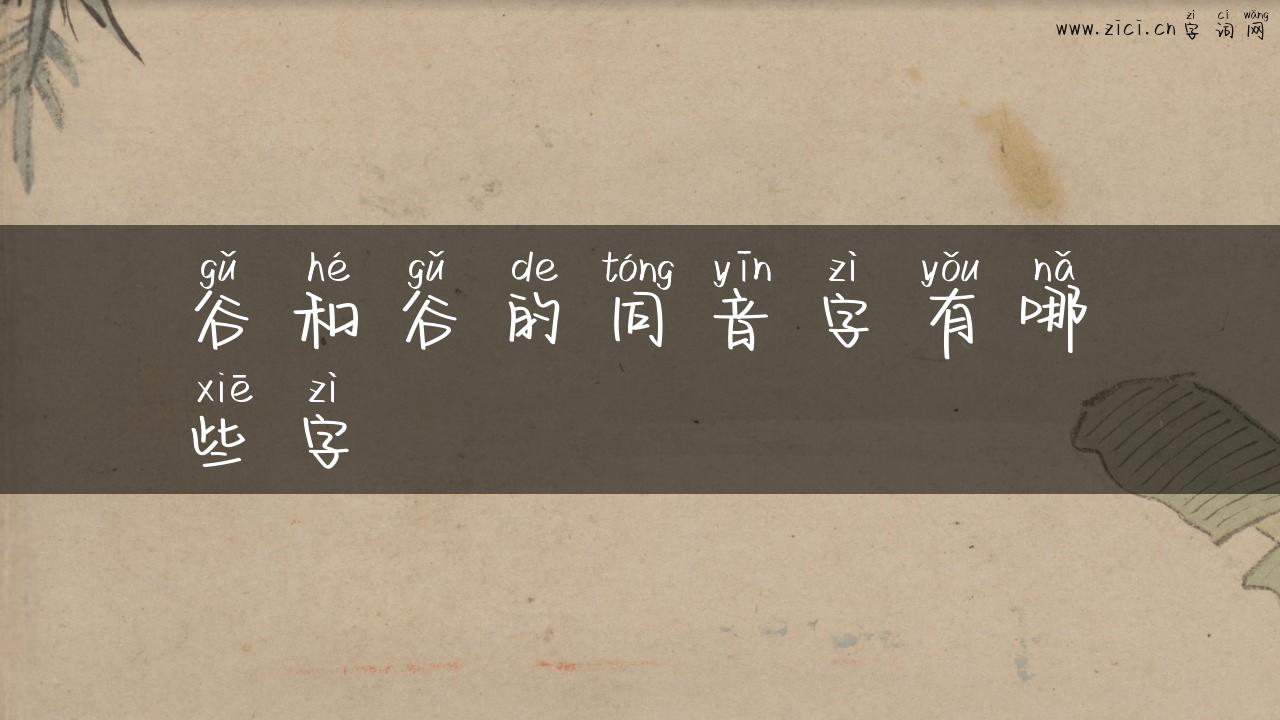 zì cí wǎng
www.zici.cn 字词网
gǔ hé gǔ de tóng yīn zì yǒu nǎ
谷和谷的同音字有哪
xiē zì
些字